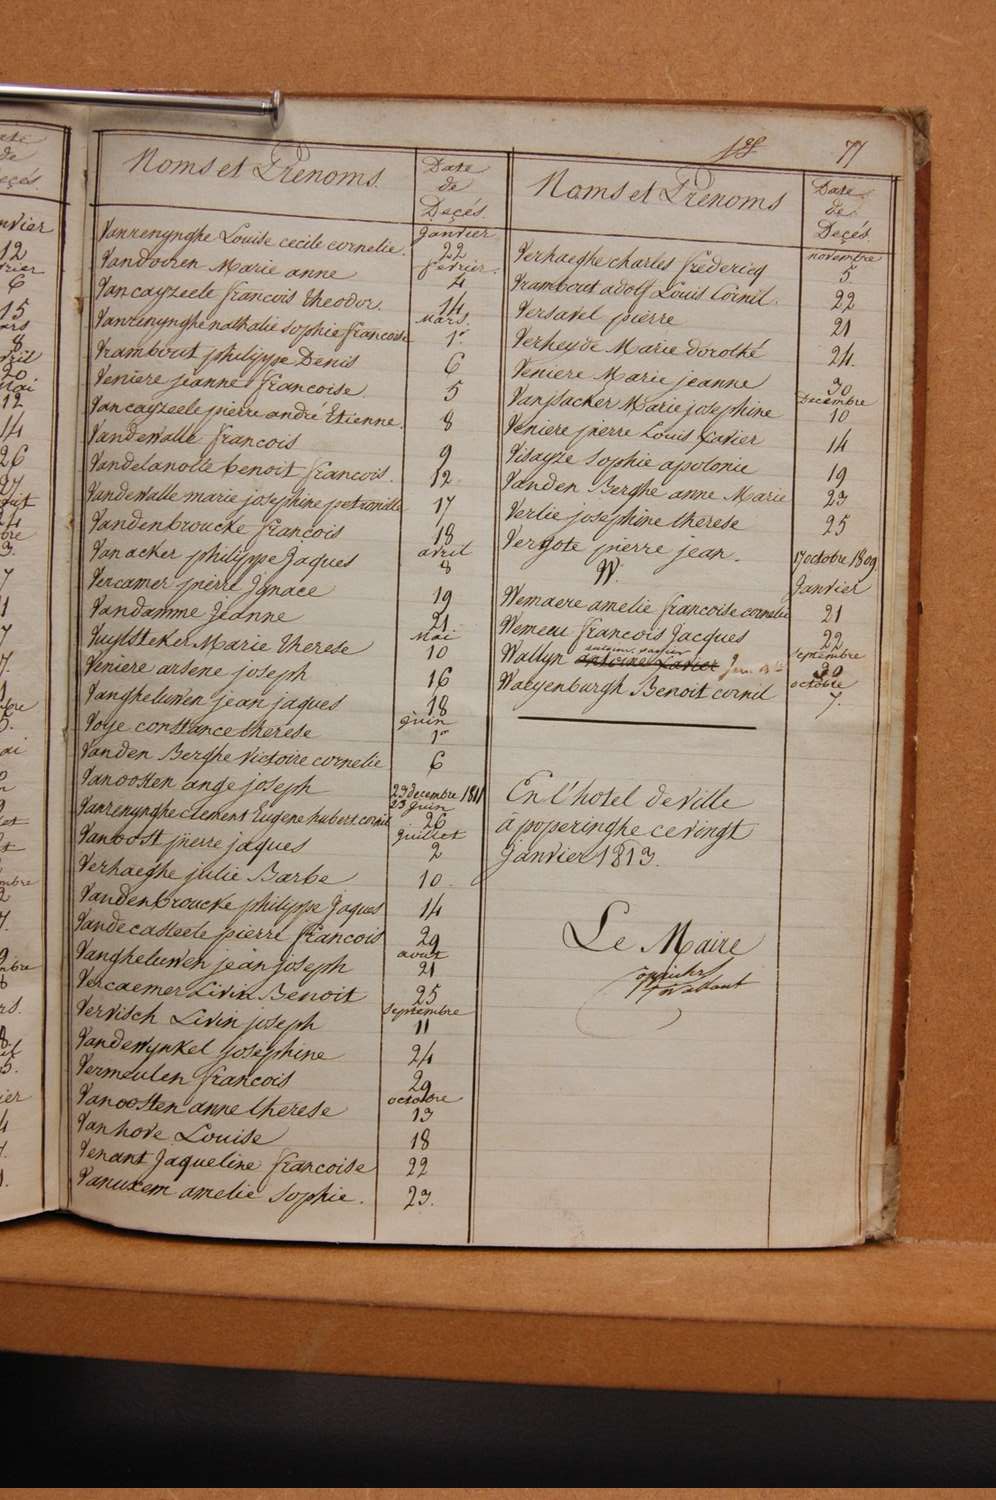 77
Noms et Prenoms. Date de Decés.
Janvier
Vanrenynghe Louise cecile cornelie. 22
Vandooren Marie anne fevrier. 4
Vancayzeele francois theodor. 14
Vanrenynghe nathalie sophie francoise Mars. 1er
Vrambout philippe Denis 6
Veniere jeanne francoise. 5
Vancayzeele pierre andré Etienne. 8
Vandewalle francois 9
Vandelanotte benoit francois. 12
Vandewalle marie josephine petronille 17
Vandenbroucke françois 18
Vanacker philippe Jaques avril 8
Vercamer pierre Ignace 19
Vandamme Jeanne 21
Vuylsteker Marie therese Mai 10
Veniere arsene joseph 16
Vangheluwen jean jaques 18
Voye constance therese juin 1er
Vanden Berghe victoire cornelie 6
Vanoosten ange joseph 23 decembre 1811
Vanrenynghe clement Eugene hubert cornil 23 juin 26
Vanoost pierre jaques Juillet 2
Verhaeghe julie Barbe 10.
Vandenbroucke philippe Jaques 14
Vandecasteele pierre francois 29
Vangheluwen jean joseph aout 21
Vercaemer Livin Benoit 25
Vervisch Livin joseph septembre 11
Vandewynkel josephine 24
Vermeulen francois 29
Vanoosten anne therese octobre 13
Vanhove Louise 18
Venant Jaqueline francoise 22
Vanuxem amelie sophie. 23.
Noms et Prenoms Date de Decés.
novembre
Verhaeghe charles fredericq 5
Vrambout adolf Louis Cornil. 22
Versavel pierre 21
Verheyde Marie dorothé 24.
Veniere Marie jeanne 30
Vanpacker Marie josephine Decembre 10
Veniere pierre Louis Xavier 14
Visayze sophie apolonie 19
Vanden Berghe anne Marie 23
Verlie josephine therese 25
Vergote pierre jean. 17 octobre 1809
W.
Janvier
Wemaere amelie francoise cornelie 21
Wemeau francois Jacques 22
Wallyn antoine Xavier septembre 30
Waeyenburgh Benoit cornil octobre 7.
En l'hotel de ville
à poperinghe ce vingt
Janvier 1813.
Le Maire